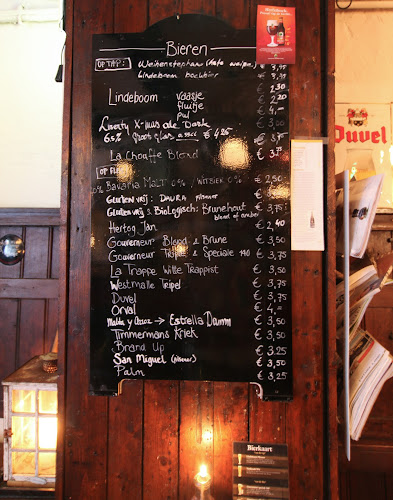 Bieren
OP TAP: Weihenstephan (Hefe weizen) € 3,95
Lindeboom bockbier € 3,75
Lindeboom vaasje € 2,30
fluitje € 2,20
pul € 4,-
Liberty X-mus ale Dark € 3,00
6.5% groot glas € 4,25 € 3,75
La Chouffe Blond € 3,75
OP FLES
0% Bavaria Malt 0% / Witbier 0% € 2,50
Glutenvrij: DAURA pilsener
Glutenvrij & Biologisch: Brunehaut € 3,75
blond of amber
Hertog Jan € 2,40
Gouverneur Blond & Brune € 3,50
Gouverneur Tripel & Speciale 140 € 3,75
La Trappe Witte Trappist € 3,50
Westmalle Tripel € 3,75
Duvel € 3,75
Orval € 4,-
Malta y Arroz → Estrella Damm € 3,50
Timmermans Kriek € 3,50
Brand Up € 3,25
San Miguel (pilsener) € 3,50
Palm € 3,25
Duvel
Bierkaart